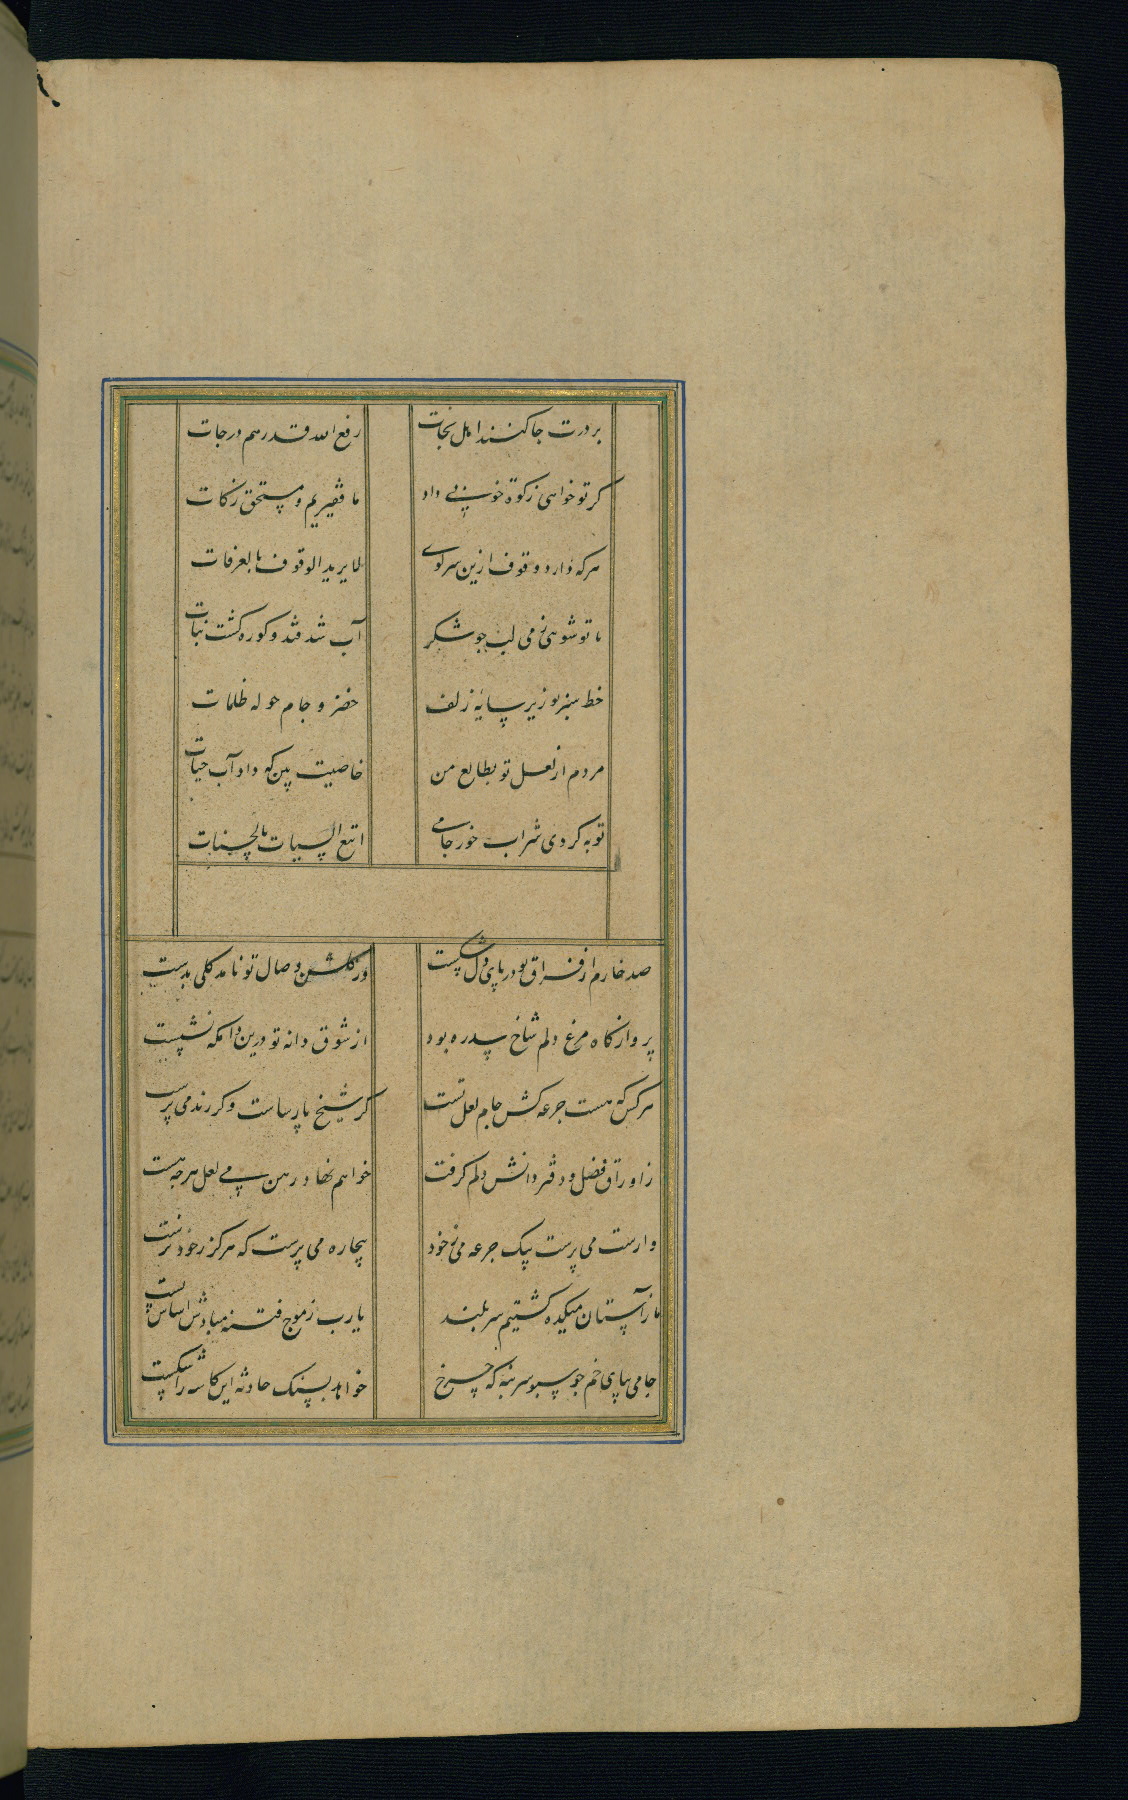 بر درت جا کنند اهل نجات رفع الله قدرهم درجات
کر تو خواهی زکوة خوبی داد ما فقیریم و مستحق زکات
هرکه دارد وقوف ازین سر کوی لا یرید الوقوف بالعرفات
تا تو شوهی می لب جو شکر آب شد قند و کوزه کشت نبات
خط سبز تو زیر سایه زلف خضر و جام حوله ظلمات
مردم از لعل تو بطالع من خاصیت بین که داد آب حیات
توبه کردی شراب خور جامی اتبع السیات بالحسنات
صد خارم از فراق تو در پای دل شکست وز کلشن وصال تو نامد کلی بدست
پرواز کاه مرغ دلم شاخ سدره بود از شوق دانه تو درین دامکه نشست
هر کس که هست جرعه کش جام لعل تست کر شیخ پارساست و کر رند می پرست
ز اوراق فضل و دفتر دانش دلم کرفت خواهم نهاد رهن می لعل هرچه هست
وارست می پرست بیک جرعه می ز خود بیچاره می پرست که هرکز ز خود نرست
ما ز آستان میکده کشتیم سر بلند یا رب ز موج فتنه مبادش اساس پست
جامی بپای خم چو سبو سر بنه که چرخ خواهد بسنک حادثه این کاسه را شکست